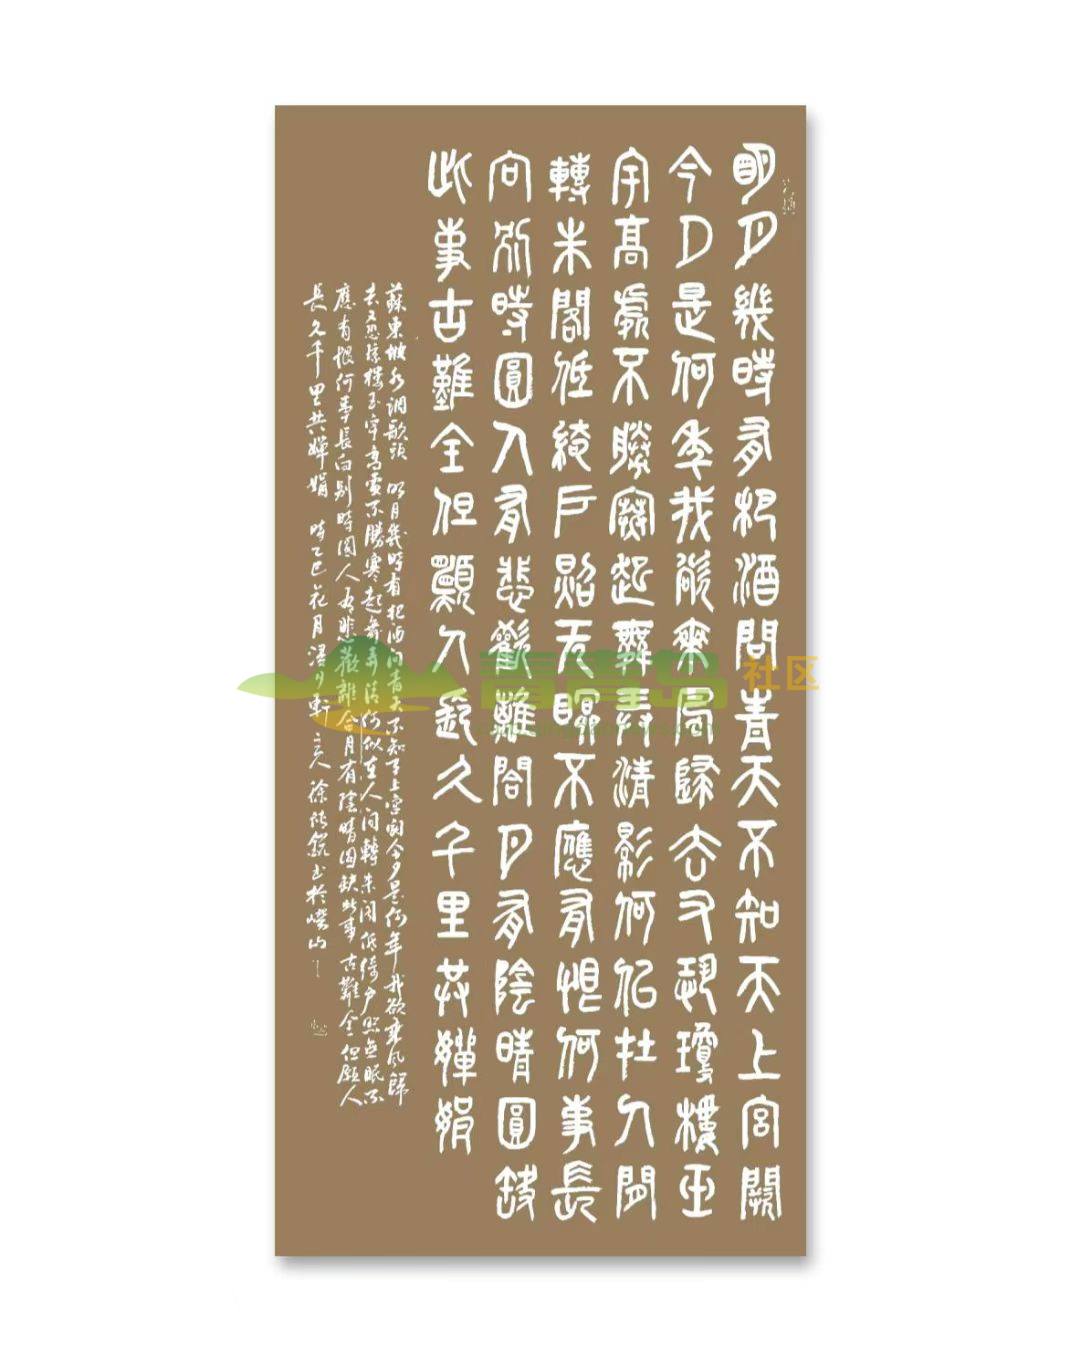 明月幾時有把酒問青天不知天上宮闕
今夕是何年我欲乘風歸去又恐瓊樓玉
宇高處不勝寒起舞弄清影何似在人間
轉朱閣低綺戶照無眠不應有恨何事長
向別時圓人有悲歡離合月有陰晴圓缺
此事古難全但願人長久千里共嬋娟
蘇東坡水調歌頭 明月幾時有把酒問青天不知天上宮闕今夕是何年我欲乘風歸
去又恐瓊樓玉宇高處不勝寒起舞弄清何似在人間轉朱閣低綺戶照無眠不
應有恨何事長向別時圓人有悲歡離合月有陰晴圓缺此事古難全但願人
長久千里共嬋娟 時乙巳花月軒主人徐書於嶗山
青青岛社区